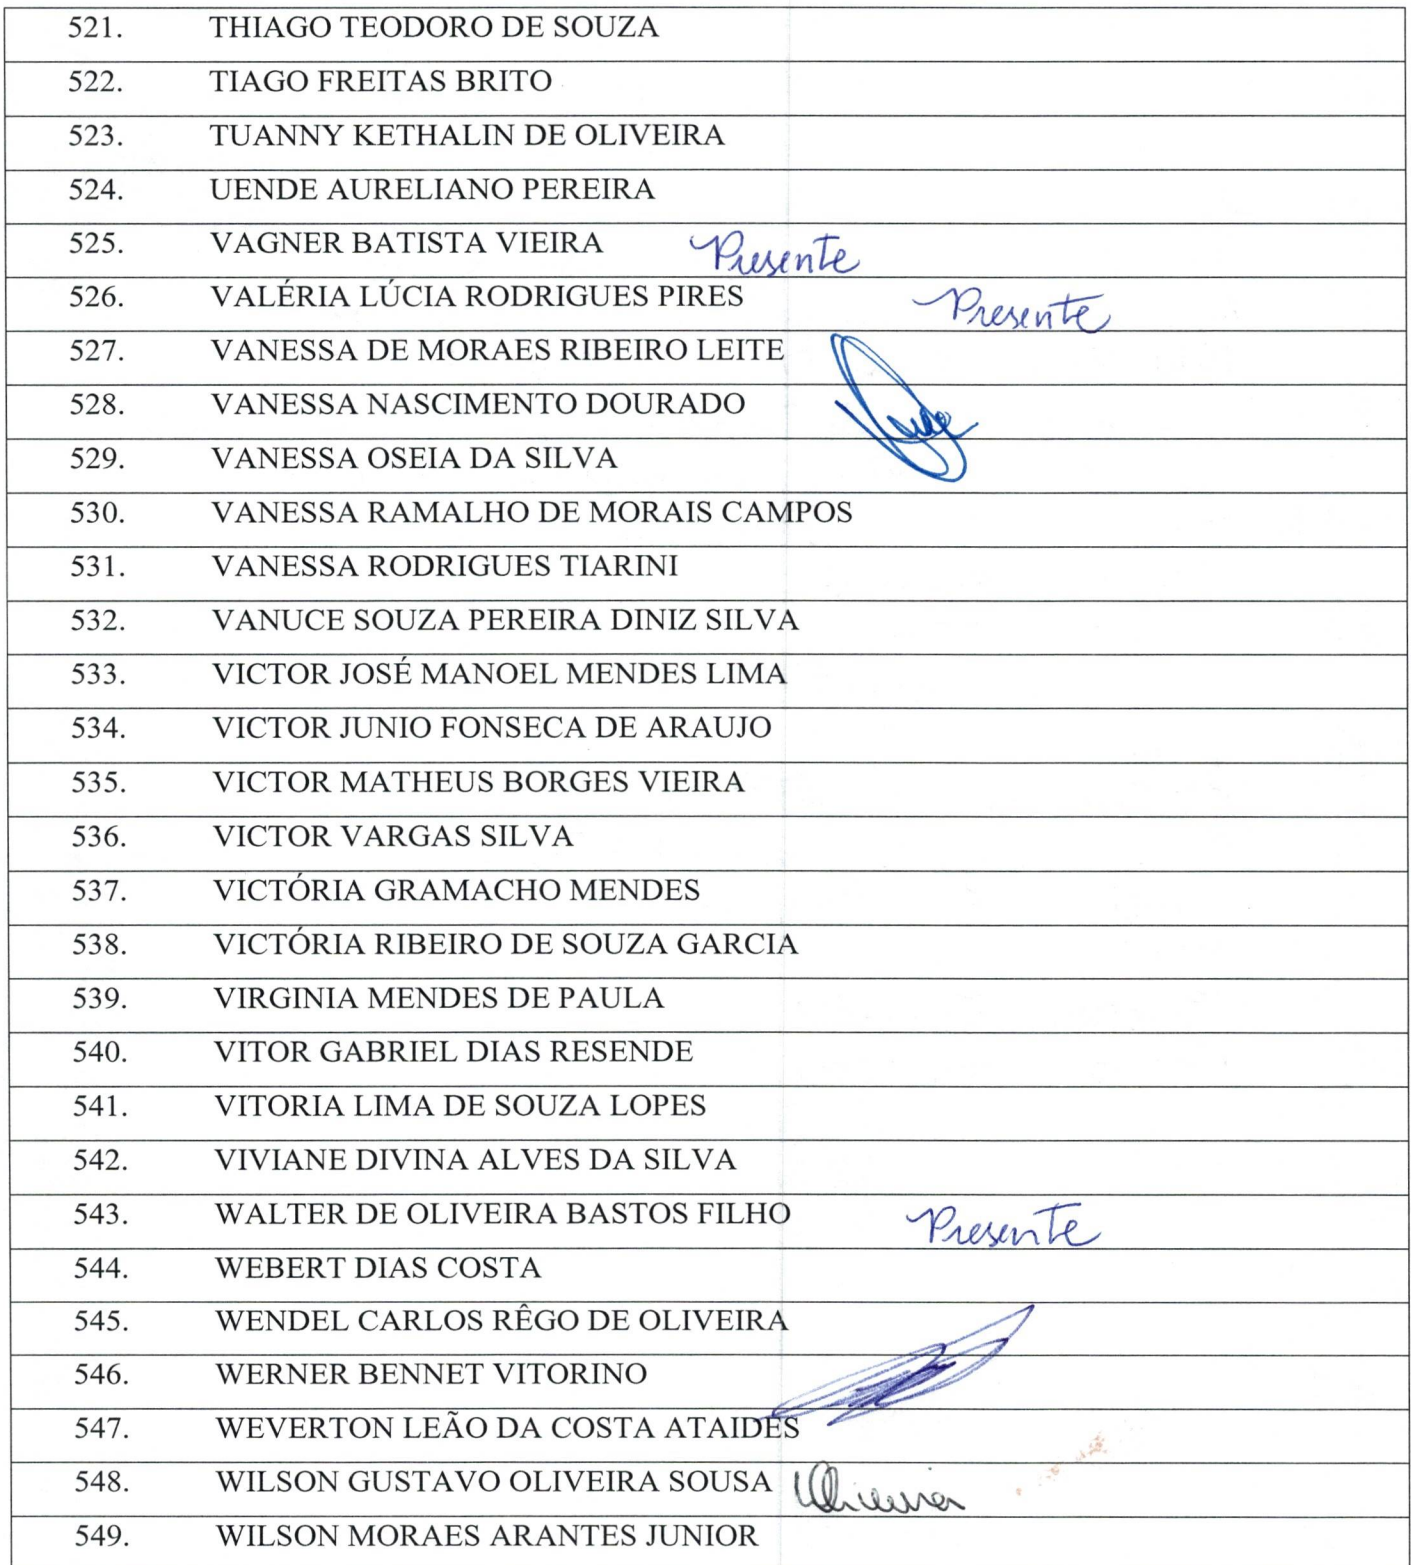 521. THIAGO TEODORO DE SOUZA
522. TIAGO FREITAS BRITO
523. TUANNY KETHALIN DE OLIVEIRA
524. UENDE AURELIANO PEREIRA
525. VAGNER BATISTA VIEIRA Presente
526. VALÉRIA LÚCIA RODRIGUES PIRES Presente
527. VANESSA DE MORAES RIBEIRO LEITE
528. VANESSA NASCIMENTO DOURADO
529. VANESSA OSEIA DA SILVA
530. VANESSA RAMALHO DE MORAIS CAMPOS
531. VANESSA RODRIGUES TIARINI
532. VANUCE SOUZA PEREIRA DINIZ SILVA
533. VICTOR JOSÉ MANOEL MENDES LIMA
534. VICTOR JUNIO FONSECA DE ARAUJO
535. VICTOR MATHEUS BORGES VIEIRA
536. VICTOR VARGAS SILVA
537. VICTÓRIA GRAMACHO MENDES
538. VICTÓRIA RIBEIRO DE SOUZA GARCIA
539. VIRGINIA MENDES DE PAULA
540. VITOR GABRIEL DIAS RESENDE
541. VITORIA LIMA DE SOUZA LOPES
542. VIVIANE DIVINA ALVES DA SILVA
543. WALTER DE OLIVEIRA BASTOS FILHO Presente
544. WEBERT DIAS COSTA
545. WENDEL CARLOS RÊGO DE OLIVEIRA
546. WERNER BENNET VITORINO
547. WEVERTON LEÃO DA COSTA ATAIDES
548. WILSON GUSTAVO OLIVEIRA SOUSA
549. WILSON MORAES ARANTES JUNIOR